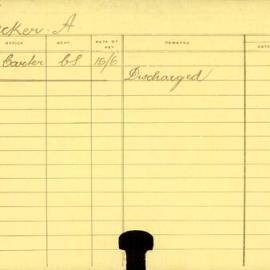 cker. A
OFFICE DEPT. RATE OF PAY REMARKS DATE
Carter CS 15/6
Discharged